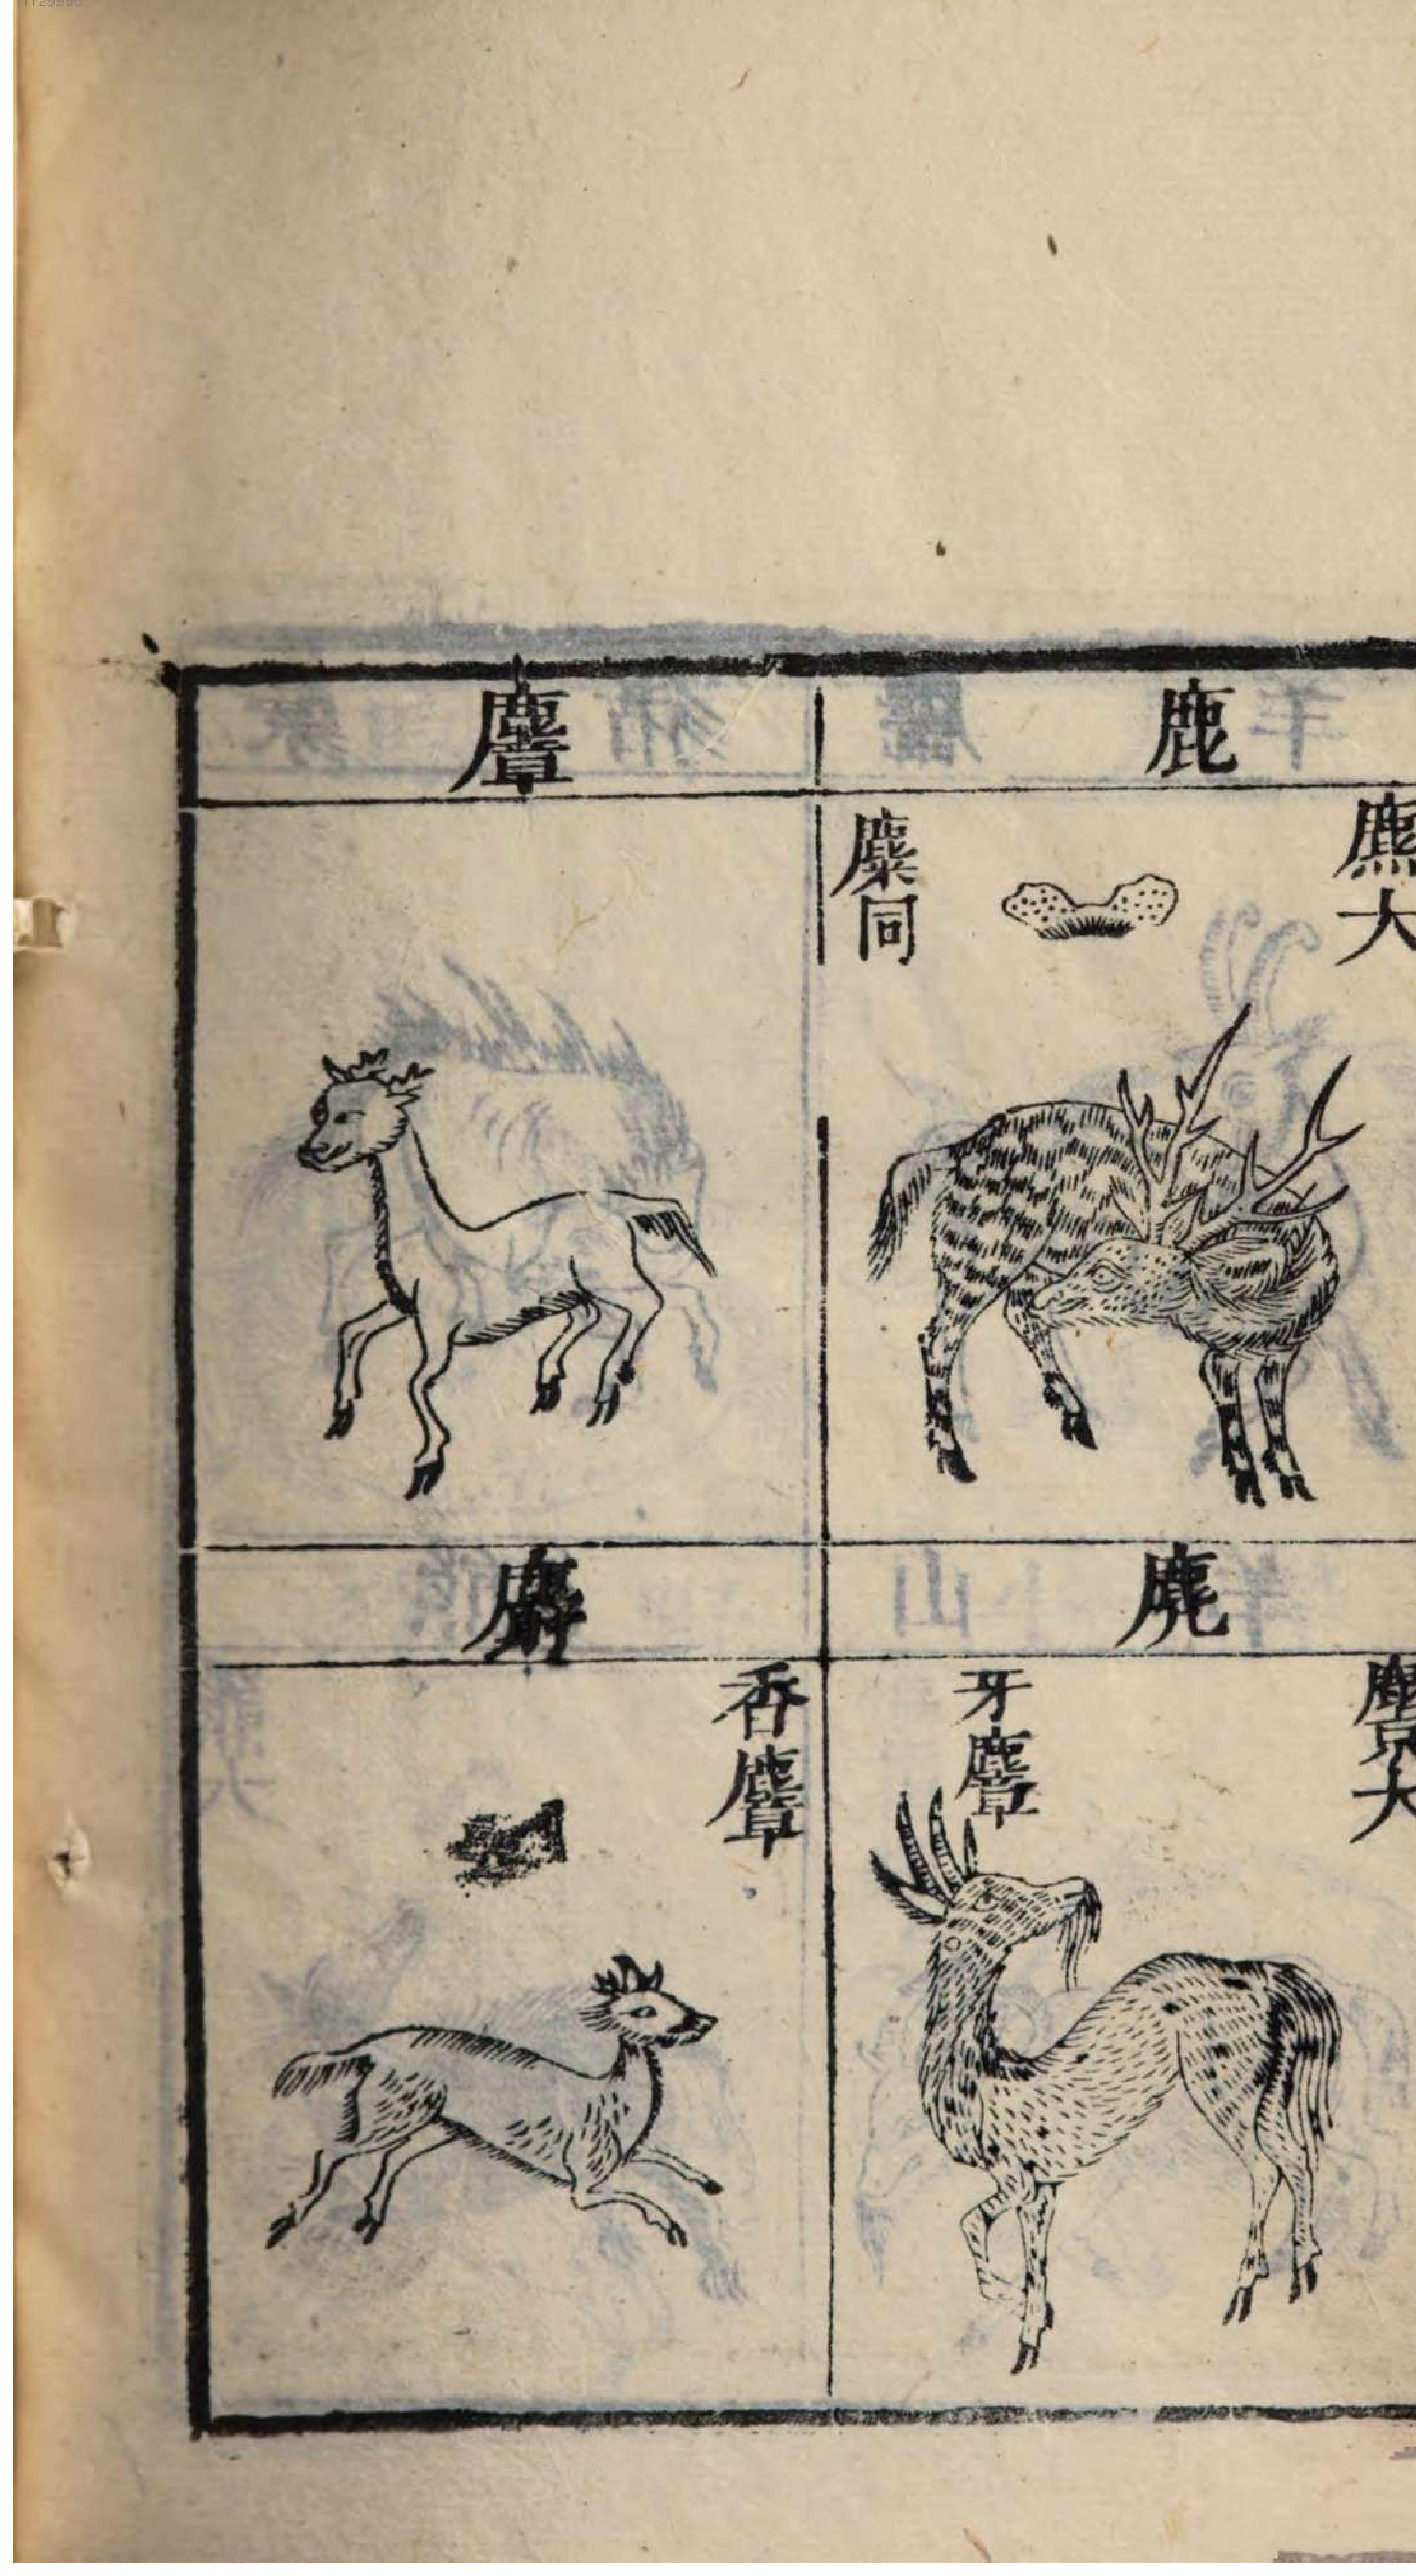 鹿
麃大
麋同
麂
麖大
牙麞
麞
麝
香麞